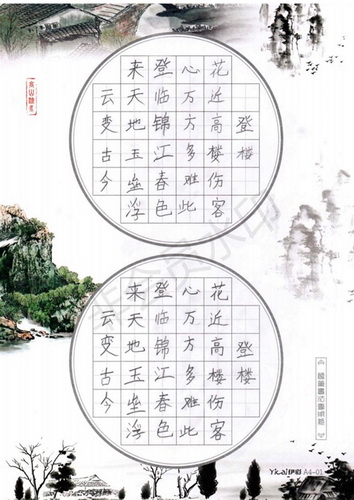 登楼
花近高楼伤客
心万方多难此
登临锦江春色
来天地玉垒浮
云变古今
登楼
花近高楼伤客
心万方多难此
登临锦江春色
来天地玉垒浮
云变古今
非会员水印
Yicai伊彩 A4-01